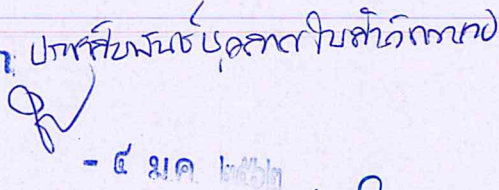 ประชาสัมพันธ์บุคลากรในสำนักงาน
- ๔ ม.ค. ๒๕๖๒